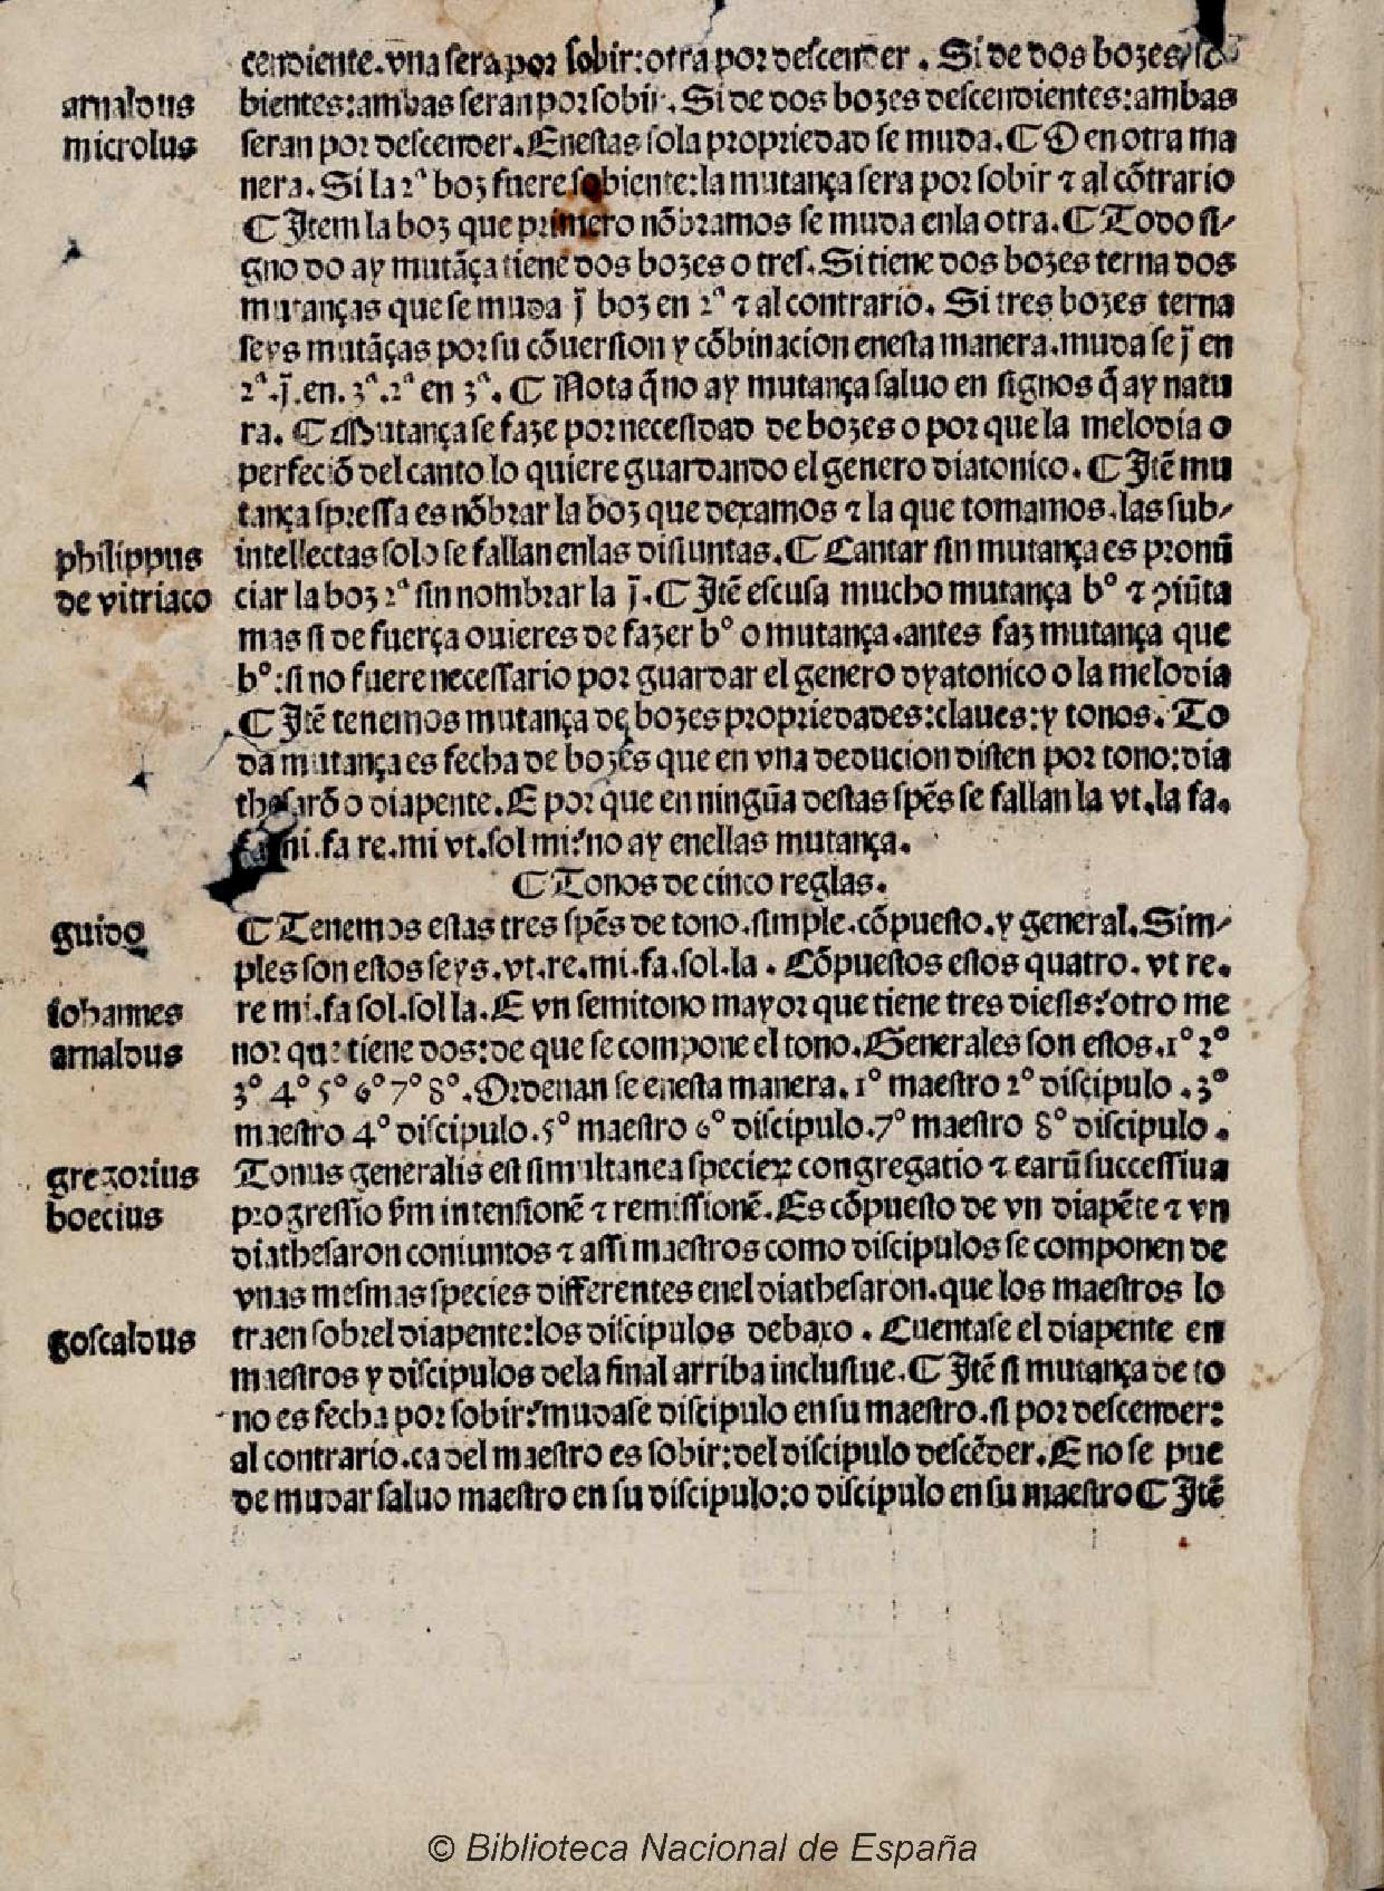 cendiente.vna sera por sobir:otra por descender . Si de dos bozes so
arnaldus
bientes:ambas seran por sobir. Si de dos bozes descendientes:ambas
microlus
seran por descender. Enestas sola propriedad se muda. ¶ O en otra ma
nera. Si la 2ª boz fuere sobiente:la mutança sera por sobir ⁊ al cõtrario
¶ Item la boz que primero nõbramos se muda enla otra. ¶ Todo si-
gno do ay mutãça tiene dos bozes o tres. Si tiene dos bozes terna dos
mutanças que se muda j̄ boz en 2ª ⁊ al contrario. Si tres bozes terna
seys mutãças por su cõuersion y cõbinacion enesta manera.muda se j̄ en
2ª.j̄.en.3ª.2ª en 3ª. ¶ Nota q̃ no ay mutança saluo en signos q̃ ay natu
ra. ¶ Mutança se faze por necessidad de bozes o por que la melodia o
perfeciõ del canto lo quiere guardando el genero diatonico. ¶ Itẽ mu
tança spressa es nõbrar la boz que dexamos ⁊ la que tomamos.las sub-
philippus
intellectas solo se fallan enlas disiuntas. ¶ Cantar sin mutança es pronũ
de vitriaco
ciar la boz 2ª sin nombrar la j̄. ¶ Itẽ escusa mucho mutança bº ⁊ ꝯiũta
mas si de fuerça ouieres de fazer bº o mutança.antes faz mutança que
bº:si no fuere necessario por guardar el genero dyatonico o la melodia
¶ Itẽ tenemos mutança de bozes propriedades:claues:y tonos. To
da mutança es fecha de bozes que en vna deducion disten por tono:dia
thesarõ o diapente. E por que en ningũa destas spẽs se fallan la vt.la fa.
fa mi.fa re.mi vt.sol mi:no ay enellas mutança.
¶ Tonos de cinco reglas.
guido
¶ Tenemos estas tres spẽs de tono.simple.cõpuesto.y general. Sim-
ples son estos seys.vt.re.mi.fa.sol.la . Cõpuestos estos quatro. vt re.
iohannes
re mi.fa sol.sol la. E vn semitono mayor que tiene tres diesis:otro me
arnaldus
nor que tiene dos:de que se compone el tono. Generales son estos.1º 2º
3º 4º 5º 6º 7º 8º. Ordenan se enesta manera. 1º maestro 2º discipulo . 3º
maestro 4º discipulo.5º maestro 6º discipulo.7º maestro 8º discipulo .
gregorius
Tonus generalis est simultanea specieꝝ congregatio ⁊ earũ successiua
boecius
progressio ẜm intensionẽ ⁊ remissionẽ. Es cõpuesto de vn diapẽte ⁊ vn
diathesaron coniuntos ⁊ assi maestros como discipulos se componen de
vnas mesmas species differentes enel diathesaron.que los maestros lo
goscaldus
traen sobrel diapente:los discipulos debaxo . Cuentase el diapente en
maestros y discipulos dela final arriba inclusiue. ¶ Itẽ si mutança de to
no es fecha por sobir:mudase discipulo en su maestro.si por descender:
al contrario.ca del maestro es sobir:del discipulo descẽder. E no se pue
de mudar saluo maestro en su discipulo:o discipulo en su maestro ¶ Itẽ
© Biblioteca Nacional de España